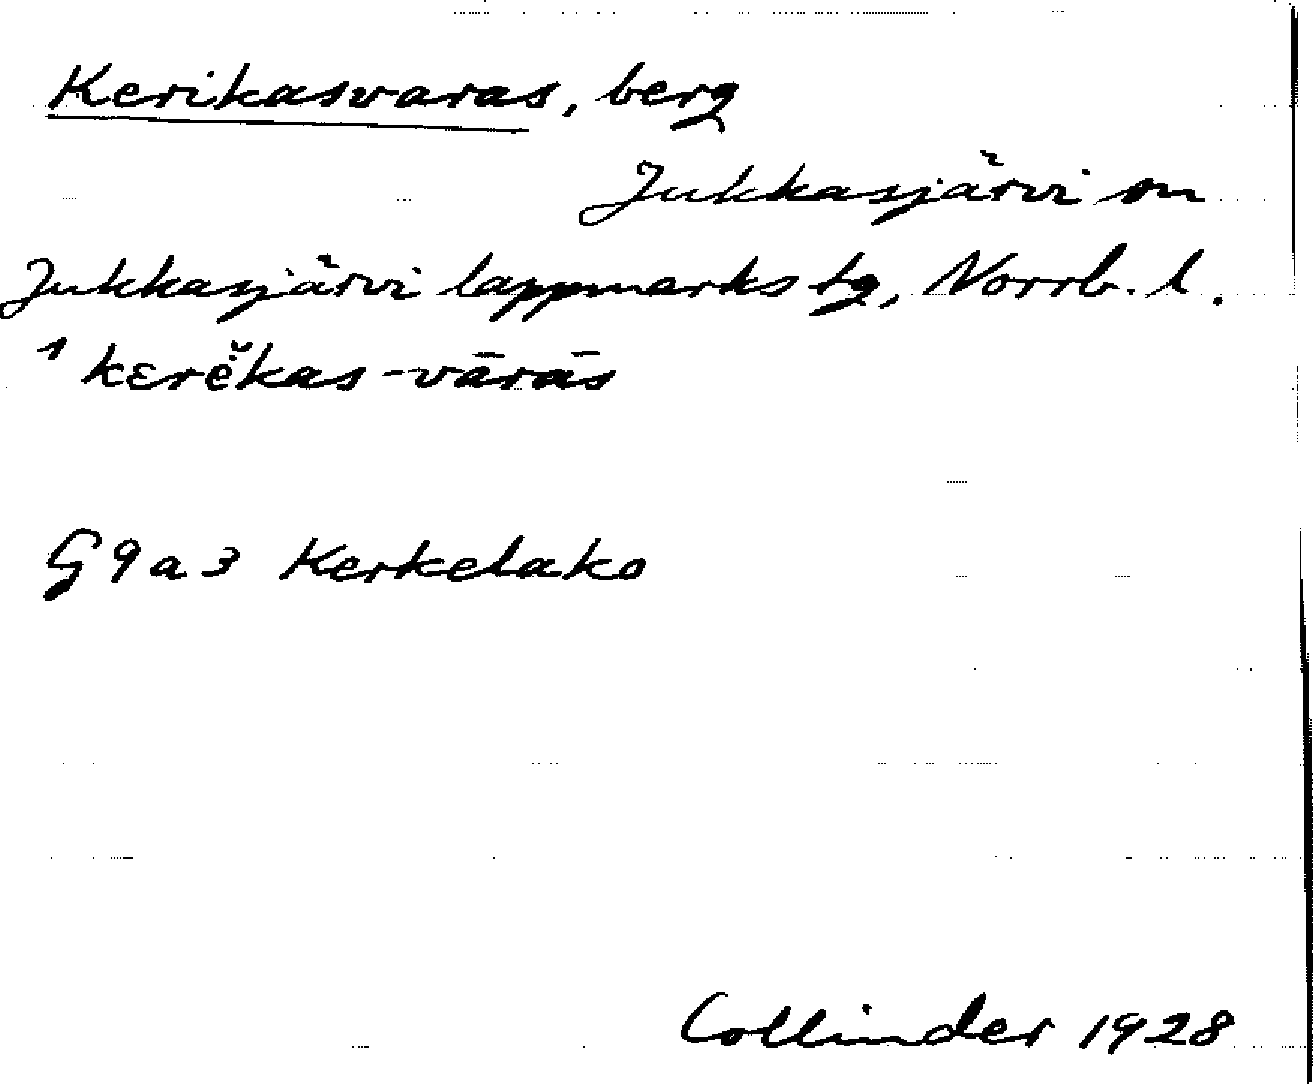 Kerikasvaras, berg
Jukkasjärvi sn
Jukkasjärvi lappmarks tg, Norrb. l.
1 kɛrĕ̈kas-vārās
G 9 a 3 Kerkelako
Collinder 1928